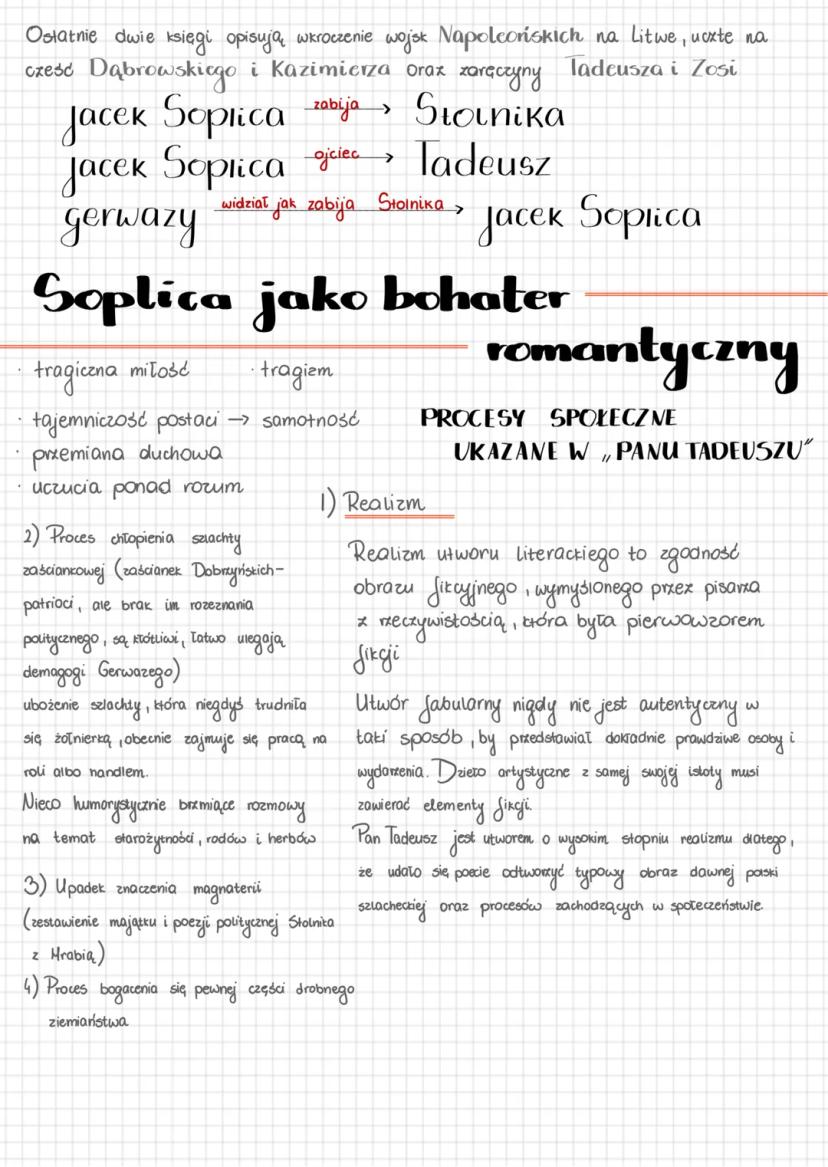 Ostatnie dwie księgi opisują wkroczenie wojsk Napoleońskich na Litwe, uczte na
cześć Dąbrowskiego i Kazimierza oraz zaręczyny Tadeusza i Zosi
Jacek Soplica zabija → Stolnika
Jacek Soplica ojciec → Tadeusz
gerwazy widział jak zabija Stolnika → Jacek Soplica
Soplica jako bohater
romantyczny
· tragiczna miłość · tragizm
· tajemniczość postaci → samotność
· przemiana duchowa
· uczucia ponad rozum
PROCESY SPOŁECZNE
UKAZANE W „PANU TADEUSZU"
1) Realizm
Realizm utworu literackiego to zgodność
obrazu fikcyjnego, wymyślonego przez pisarza
z rzeczywistością, która była pierwowzorem
fikcji
Utwór fabularny nigdy nie jest autentyczny w
taki sposób, by przedstawiał dokładnie prawdziwe osoby i
wydarzenia. Dzieło artystyczne z samej swojej istoty musi
zawierać elementy fikcji.
Pan Tadeusz jest utworem o wysokim stopniu realizmu dlatego,
że udało się poecie odtworzyć typowy obraz dawnej polski
szlacheckiej oraz procesów zachodzących w społeczeństwie.
2) Proces chłopienia szlachty
zaściankowej (zaścianek Dobrzyńskich-
patrioci, ale brak im rozeznania
politycznego, są kłótliwi, łatwo ulegają
demagogi Gerwazego)
ubożenie szlachty, która niegdyś trudniła
się żołnierką, obecnie zajmuje się pracą na
roli albo handlem.
Nieco humorystycznie brzmiące rozmowy
na temat starożytności, rodów i herbów
3) Upadek znaczenia magnaterii
(zestawienie majątku i poezji politycznej Stolnika
z Hrabią)
4) Proces bogacenia się pewnej części drobnego
ziemiaństwa